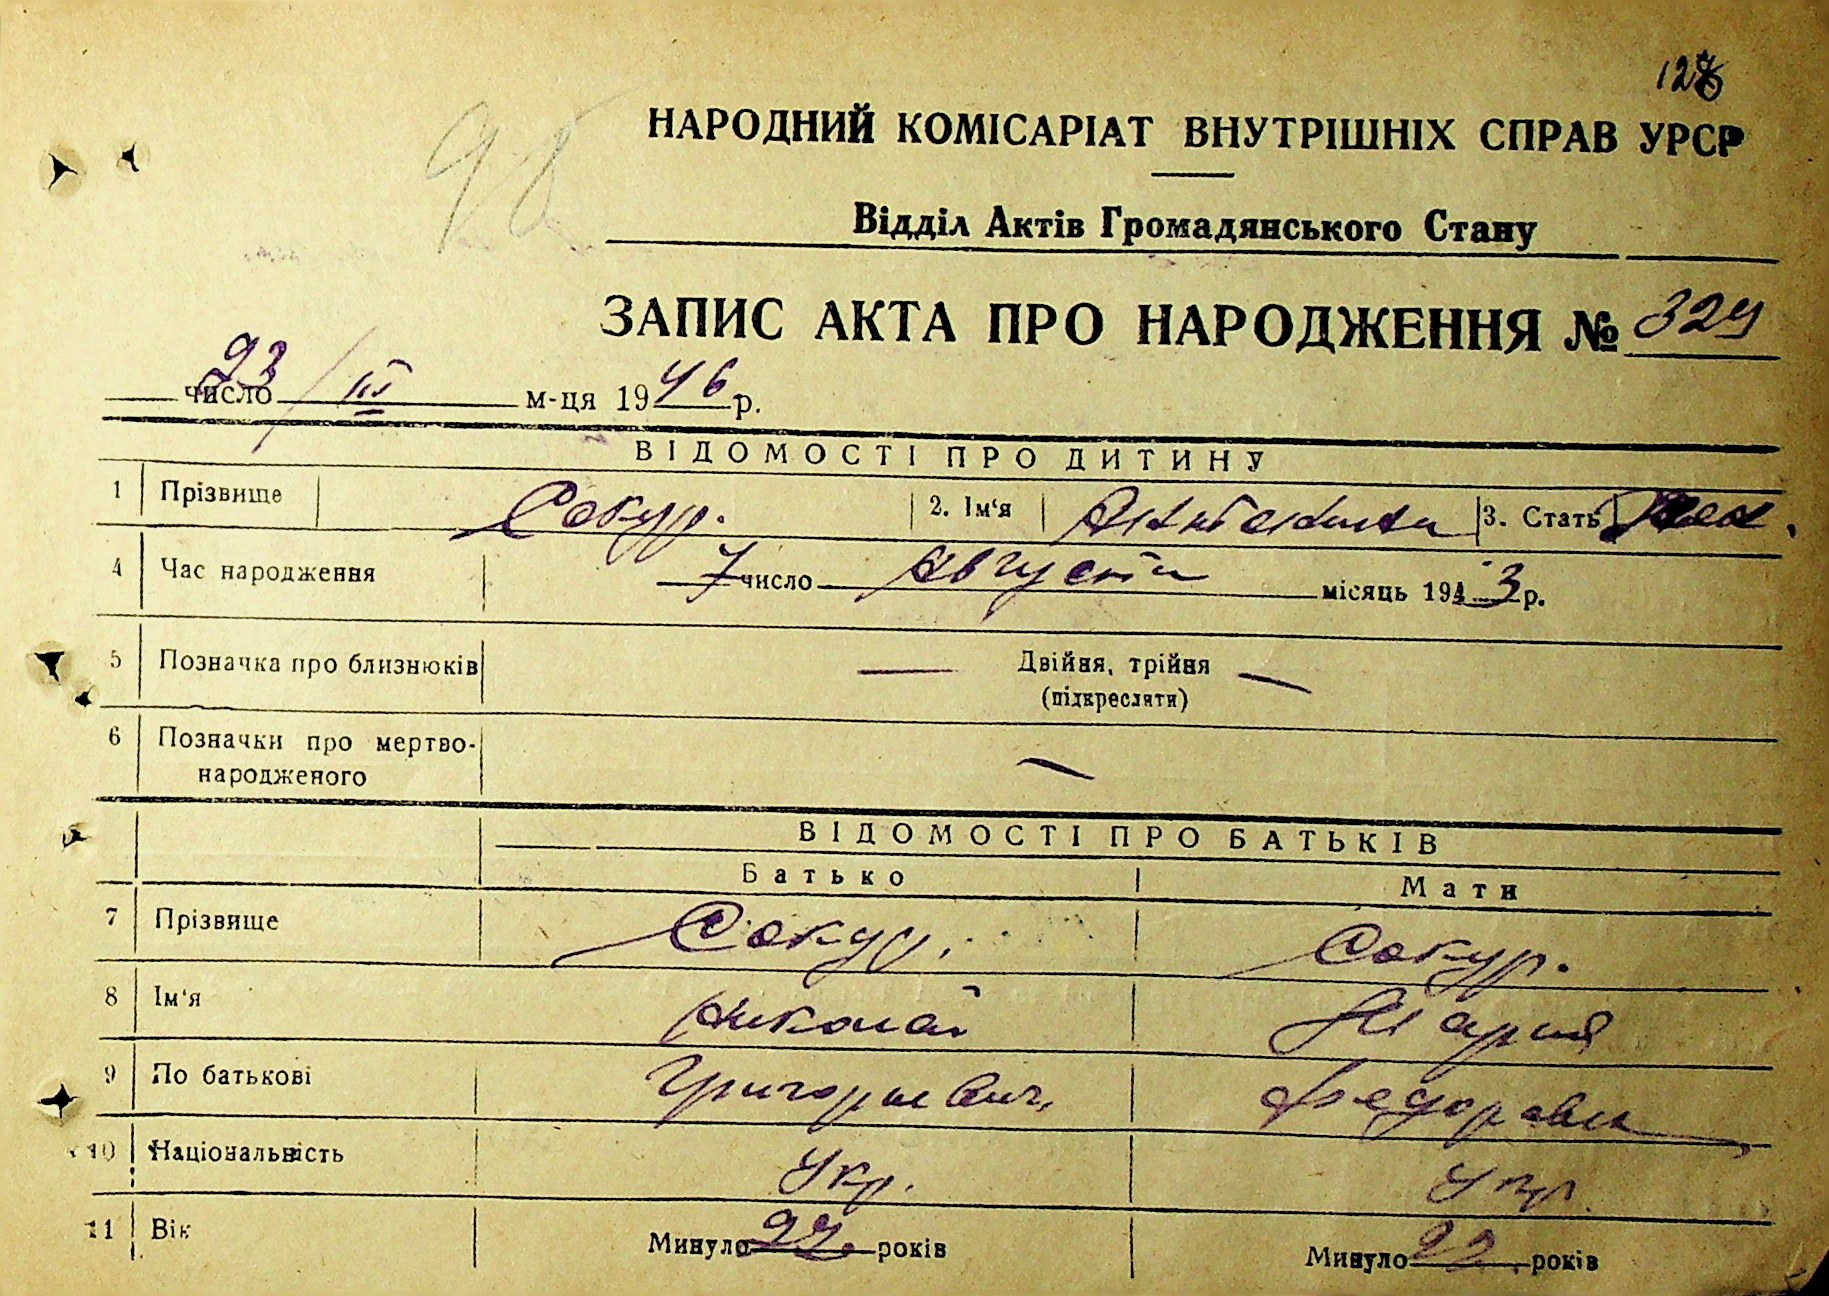 128
98
НАРОДНИЙ КОМІСАРІАТ ВНУТРІШНІХ СПРАВ УРСР
Відділ Актів Громадянського Стану
ЗАПИС АКТА ПРО НАРОДЖЕННЯ № 324
23 число / III м-ця 1946 р.
ВІДОМОСТІ ПРО ДИТИНУ
1 Прізвище Сокур. 2. Ім'я Антонина 3. Стать жен.
4 Час народження 7 число Августа місяць 1943 р.
5 Позначка про близнюків — Двійня, трійня —
(підкресляти)
6 Позначки про мертво-
народженого —
ВІДОМОСТІ ПРО БАТЬКІВ
Батько Мати
7 Прізвище Сокур. Сокур.
8 Ім'я Николай Мария
9 По батькові Григорьевич Федоровна
10 Національність Укр. Укр.
11 Вік Минуло років Минуло років